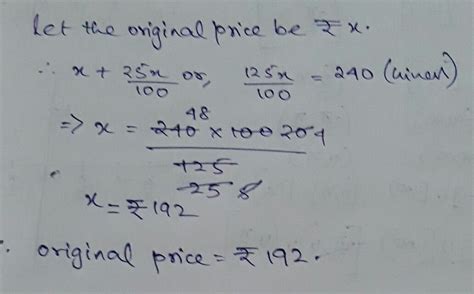 Let the original price be ₹ x.
∴ x + 25x/100 or, 125x/100 = 240 (Given)
48
⇒ x = 240 × 100 20 4
125
25
x = ₹ 192
∴ original price = ₹ 192.